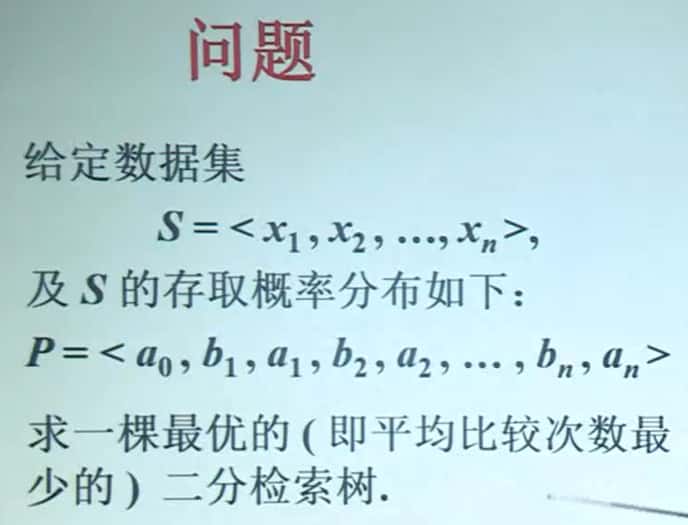 问题
给定数据集
S = < x₁, x₂, …, xₙ >,
及 S 的存取概率分布如下：
P = < a₀, b₁, a₁, b₂, a₂, … , bₙ, aₙ >
求一棵最优的 ( 即平均比较次数最
少的 ) 二分检索树.